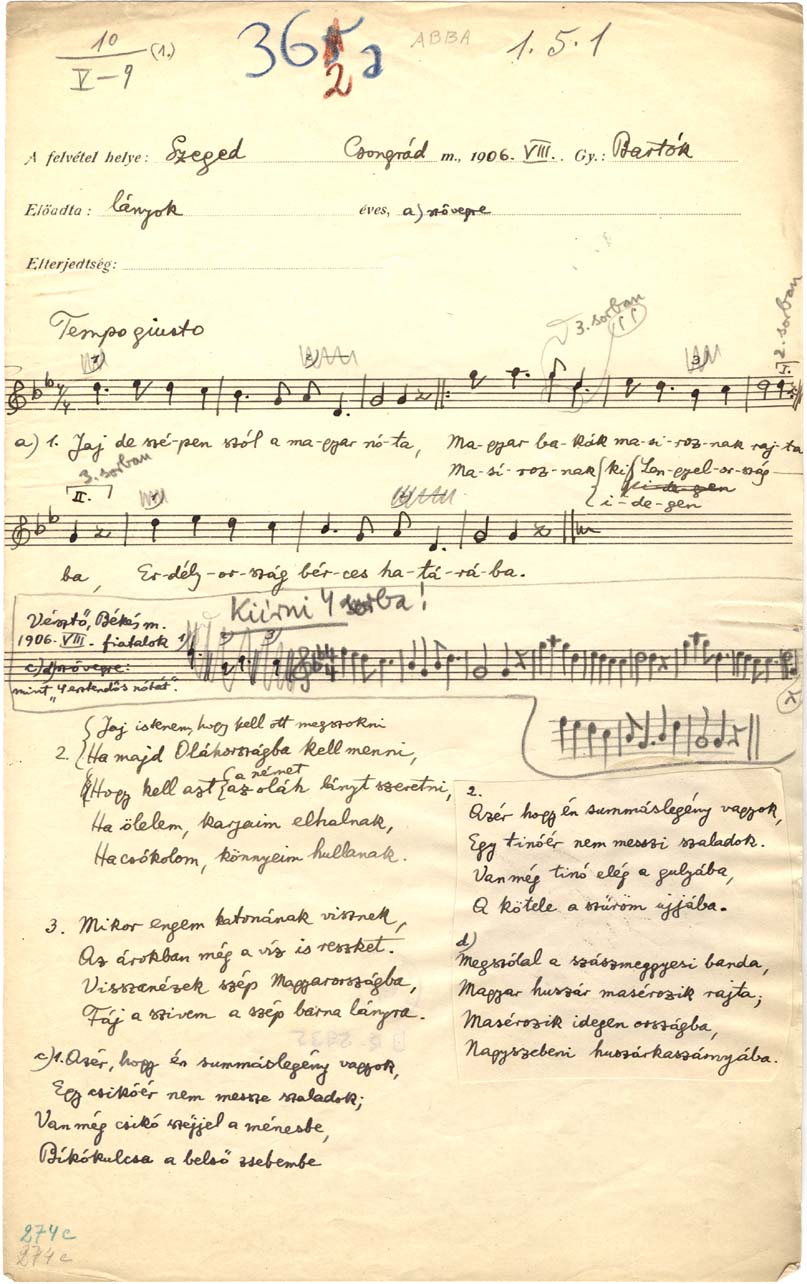 10 (1.)
V-9
36
2a
ABBA
1.5.1
A felvétel helye: Szeged Csongrád m., 1906. VIII. Gy.: Bartók
Előadta: lányok éves, a) szövegre
Elterjedtség:
Tempo giusto
3. sorban
2. sorban
a) 1. Jaj de szé-pen szól a ma-gyar nó-ta, Ma-gyar ba-kák ma-si-roz-nak raj-ta
3. sorban
Ma-si-roz-nak ki Len-gyel-or-szág
i-de-gen
II.
ba, Er-dély-or-szág bér-ces ha-tá-rá-ba.
Kiírni 4 sorba!
Vésztő, Békés m.
1906. VIII. fiatalok
c) d) szövegre:
mint „4 esztendős nótát".
Jaj istenem, hogy kell ott megszokni
2. Ha majd Oláhországba kell menni,
a német
Hogy kell azt az oláh lányt szeretni,
Ha ölelem, karjaim elhalnak,
Ha csókolom, könnyeim hullanak.
3. Mikor engem katonának visznek,
Az árokban még a víz is reszket.
Visszanézek szép Magyarországba,
Fáj a szivem a szép barna lányra.
c) 1. Azér, hogy én summáslegény vagyok,
Egy csikóér nem messze szaladok;
Van még csikó széjjel a ménesbe,
Bíkókulcsa a belső zsebembe
2.
Azér hogy én summáslegény vagyok,
Egy tinóér nem messzi szaladok.
Van még tinó elég a gulyába,
A kötele a szűröm ujjába.
d)
Megszólal a szászmegygyesi banda,
Magyar huszár masérozik rajta;
Masérozik idegen országba,
Nagyszebeni huszárkaszárnyába.
274c
274c